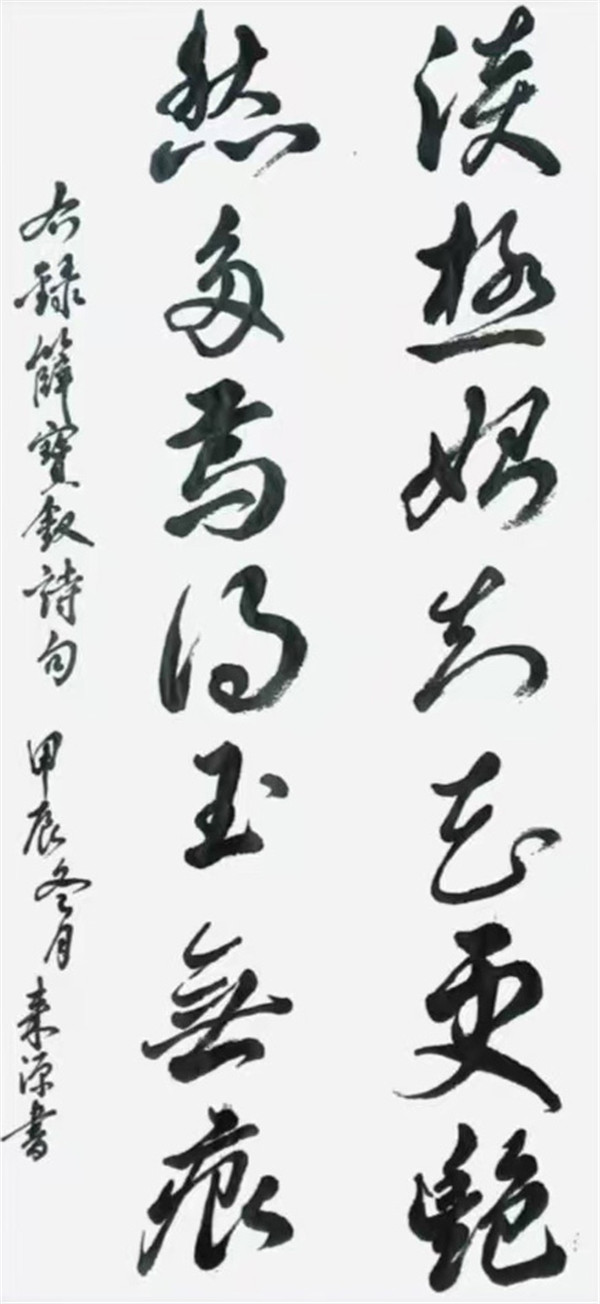 淡極始知花更艷
愁多焉得玉無痕
右錄薛寶釵詩句 甲辰冬月 来源書